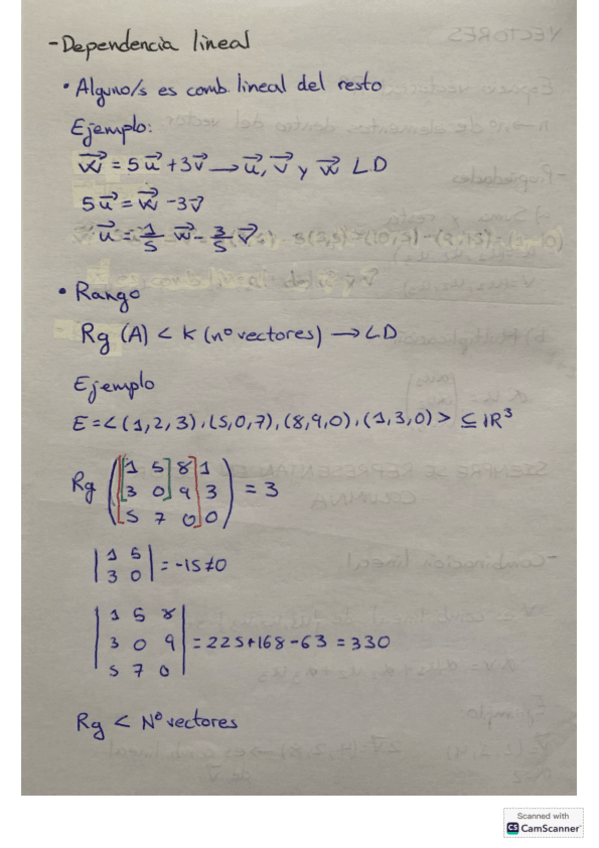 - Dependencia lineal
• Alguno/s es comb. lineal del resto
Ejemplo:
w⃗ = 5u⃗ + 3v⃗ → u⃗, v⃗ y w⃗ LD
5u⃗ = w⃗ - 3v⃗
u⃗ = 1/5 w⃗ - 3/5 v⃗
• Rango
Rg (A) < K (nº vectores) → LD
Ejemplo
E = < (1,2,3), (5,0,7), (8,9,0), (1,3,0) > ⊆ IR³
1 5 8 1
Rg 3 0 9 3 = 3
5 7 0 0
1 5
3 0 = -15 ≠ 0
1 5 8
3 0 9 = 225 + 168 - 63 = 330
5 7 0
Rg < Nº vectores
Scanned with
CS CamScanner